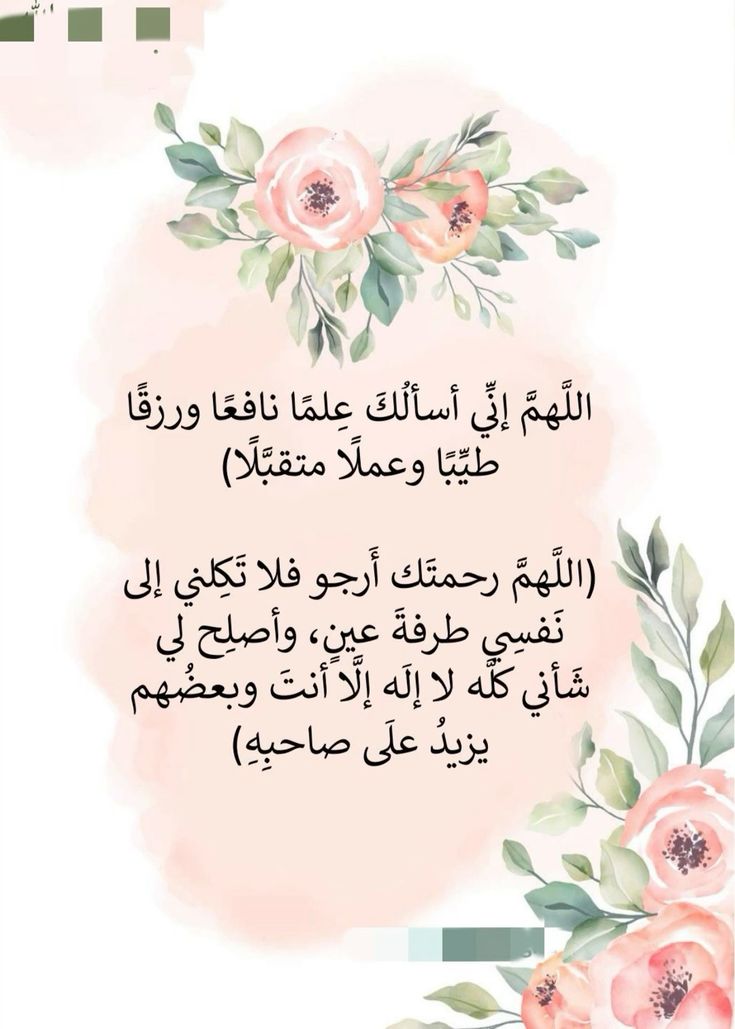 اللَّهمَّ إنِّي أسألُكَ عِلمًا نافعًا ورزقًا
طيِّبًا وعملًا متقبَّلًا)
(اللَّهمَّ رحمتَك أَرجو فلا تَكِلني إلى
نَفسِي طرفةَ عينٍ، وأصلِح لي
شَأني كلَّه لا إلَه إلَّا أنتَ وبعضُهم
يزيدُ علَى صاحبِهِ)